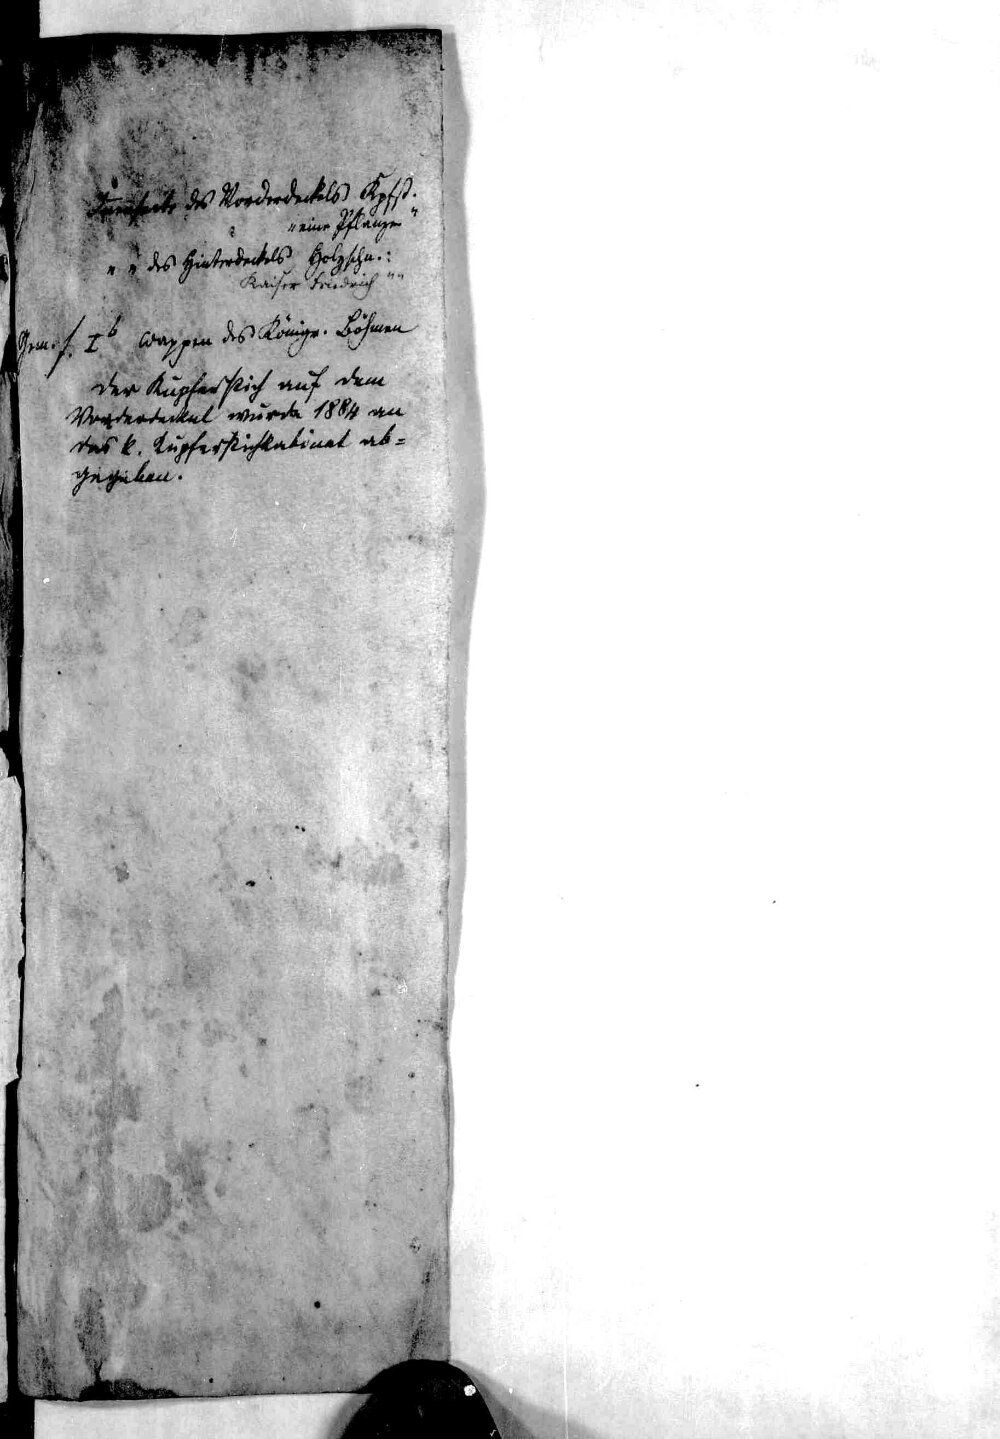 Innenseite des Vorderdeckels Kpfst.
"eine Pflanze"
" " des Hinterdeckels Holzschn.:
Kaiser Friedrich ""
Gem. f. I b Wappen des Königr. Böhmen
Der Kupferstich auf dem
Vorderdeckel wurde 1884 an
das k. Kupferstichkabinet ab=
gegeben.